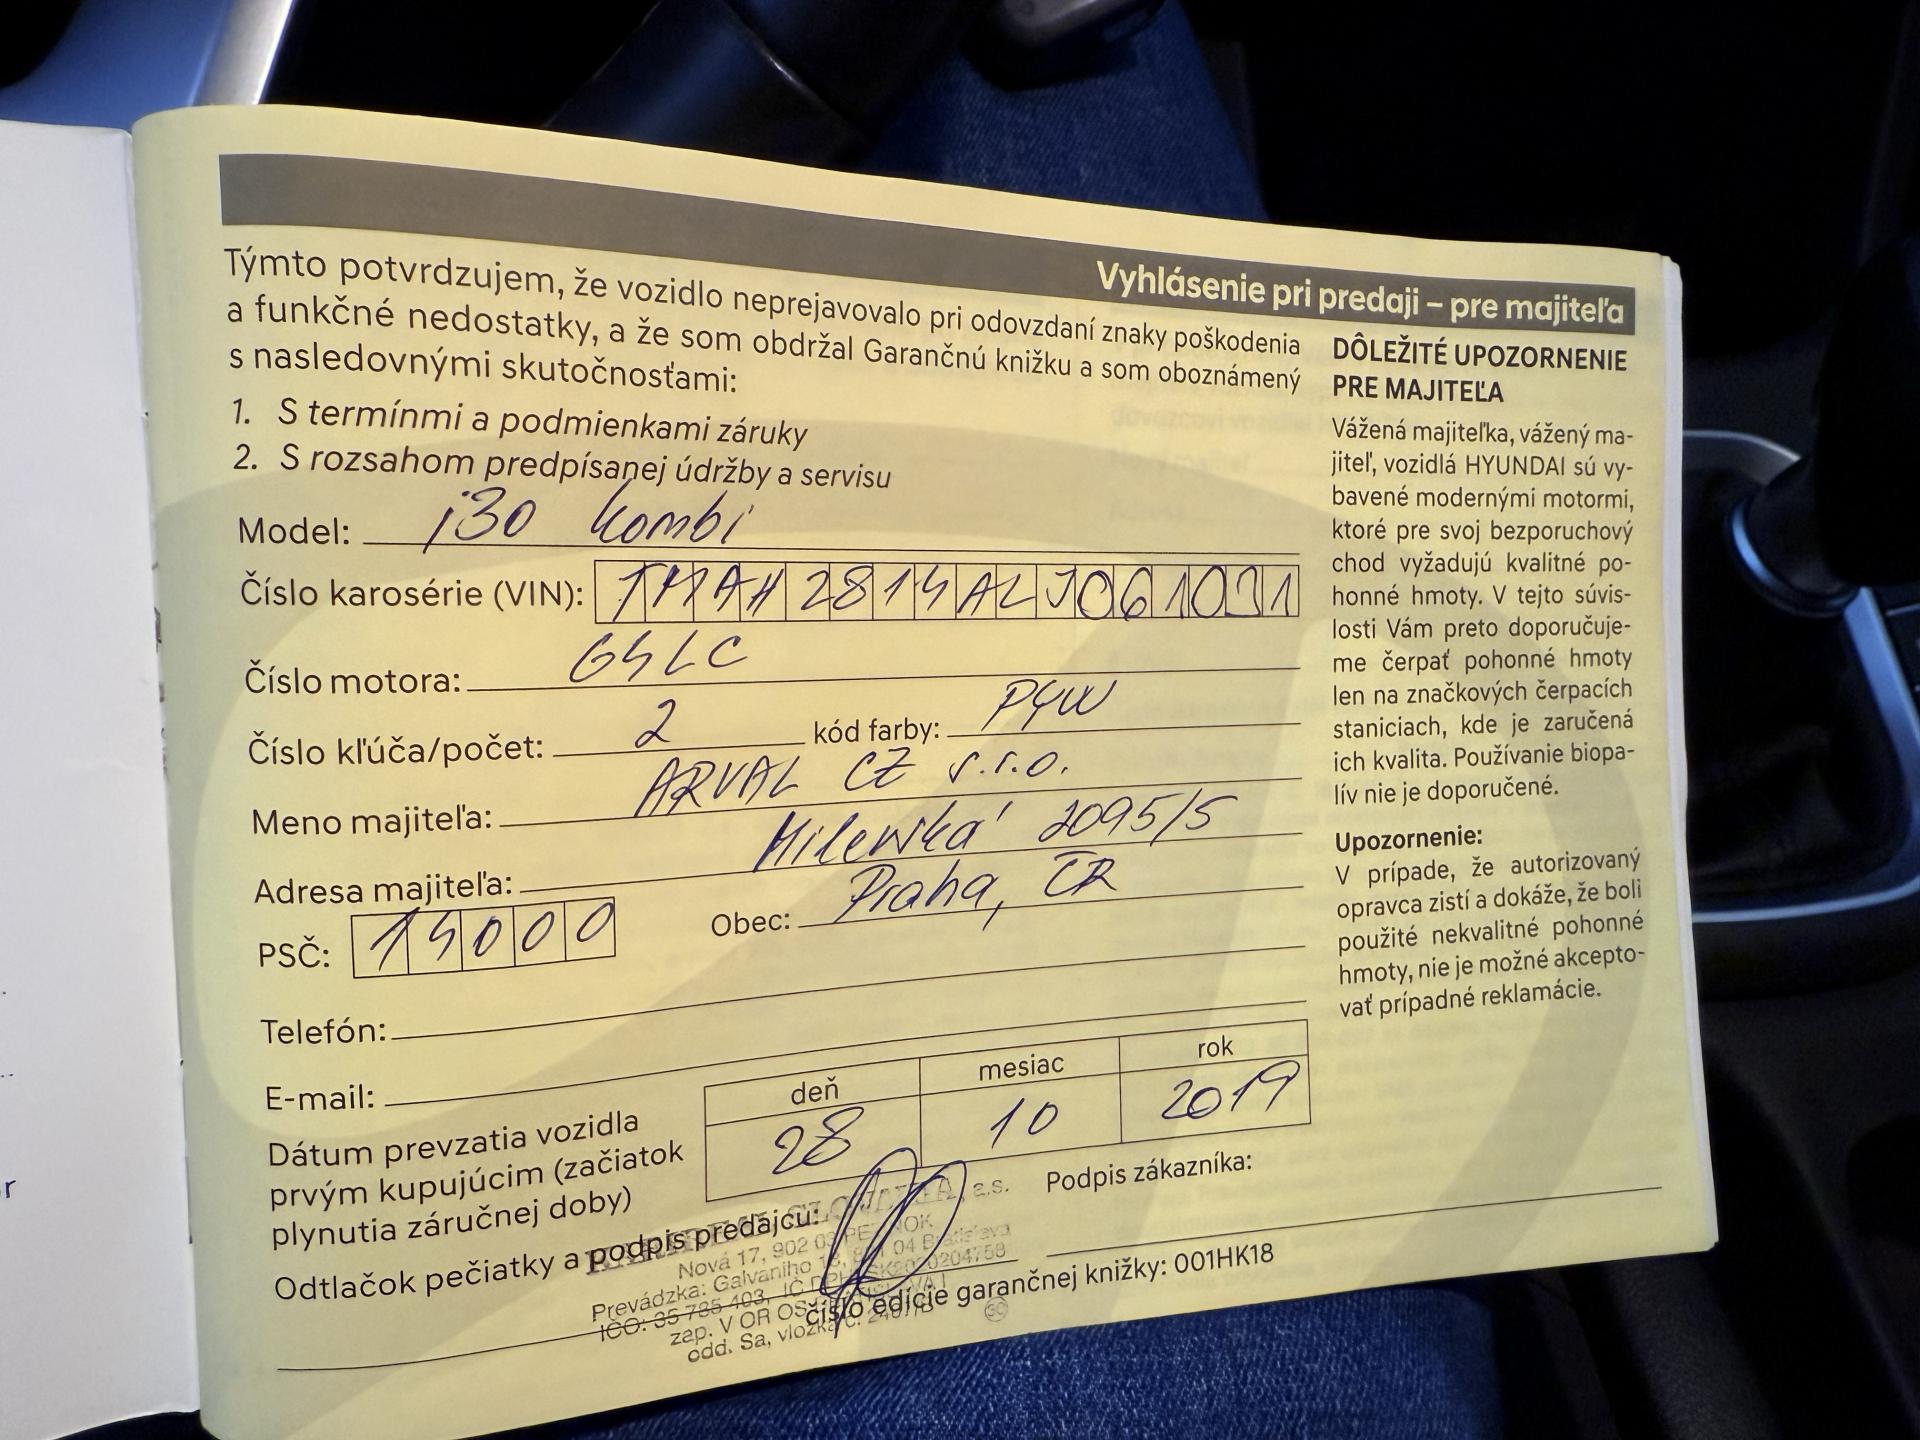 Vyhlásenie pri predaji – pre majiteľa
Týmto potvrdzujem, že vozidlo neprejavovalo pri odovzdaní znaky poškodenia
a funkčné nedostatky, a že som obdržal Garančnú knižku a som oboznámený
s nasledovnými skutočnosťami:
1. S termínmi a podmienkami záruky
2. S rozsahom predpísanej údržby a servisu
Model: i30 kombi
Číslo karosérie (VIN): TMAH2814ALJ061031
Číslo motora: G4LC
Číslo kľúča/počet: 2 kód farby: PYW
Meno majiteľa: ARVAL CZ s.r.o.
Adresa majiteľa: Milevská 2095/5
PSČ: 14000 Obec: Praha, ČR
Telefón:
E-mail:
Dátum prevzatia vozidla
prvým kupujúcim (začiatok
plynutia záručnej doby)
deň mesiac rok
28 10 2019
Odtlačok pečiatky a podpis predajcu:
Podpis zákazníka:
a.s.
Nová 17, 902 03 PEZINOK
Prevádzka: Galvaniho 04 Bratislava
IČO: 35 785 403, IČ DPH: SK2020204758
zap. V OR OS
odd. Sa, vložka č.
číslo edície garančnej knižky: 001HK18
DÔLEŽITÉ UPOZORNENIE
PRE MAJITEĽA
Vážená majiteľka, vážený ma-
jiteľ, vozidlá HYUNDAI sú vy-
bavené modernými motormi,
ktoré pre svoj bezporuchový
chod vyžadujú kvalitné po-
honné hmoty. V tejto súvis-
losti Vám preto doporučuje-
me čerpať pohonné hmoty
len na značkových čerpacích
staniciach, kde je zaručená
ich kvalita. Používanie biopa-
lív nie je doporučené.
Upozornenie:
V prípade, že autorizovaný
opravca zistí a dokáže, že boli
použité nekvalitné pohonné
hmoty, nie je možné akcepto-
vať prípadné reklamácie.